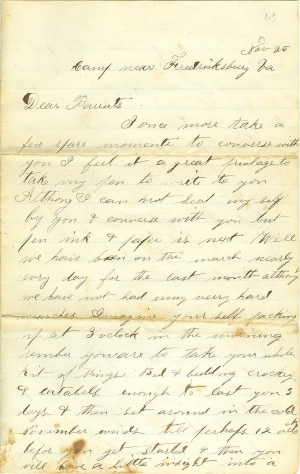 Nov 25
Camp near Fredricksburg Va
Dear Parents
I once more take a
few spare moments to converse with
you I feel it a great privlage to
take my pen to write to you
Althoug I can not seat my self
by you & converse with you but
pen ink & paper is next Well
we have been on the march nearly
evry day for the last month althoug
we have not had enny verry hard
marches Imagine your self packing
up at 3 oclock in the morning
rember you are to take your whole
kit of things Bed & bedding crockry
& eatabels enough to last you 3
days & then set around in the cold
November winds till perhaps 12 oclk
before you get started & then you
will have a little insight into a